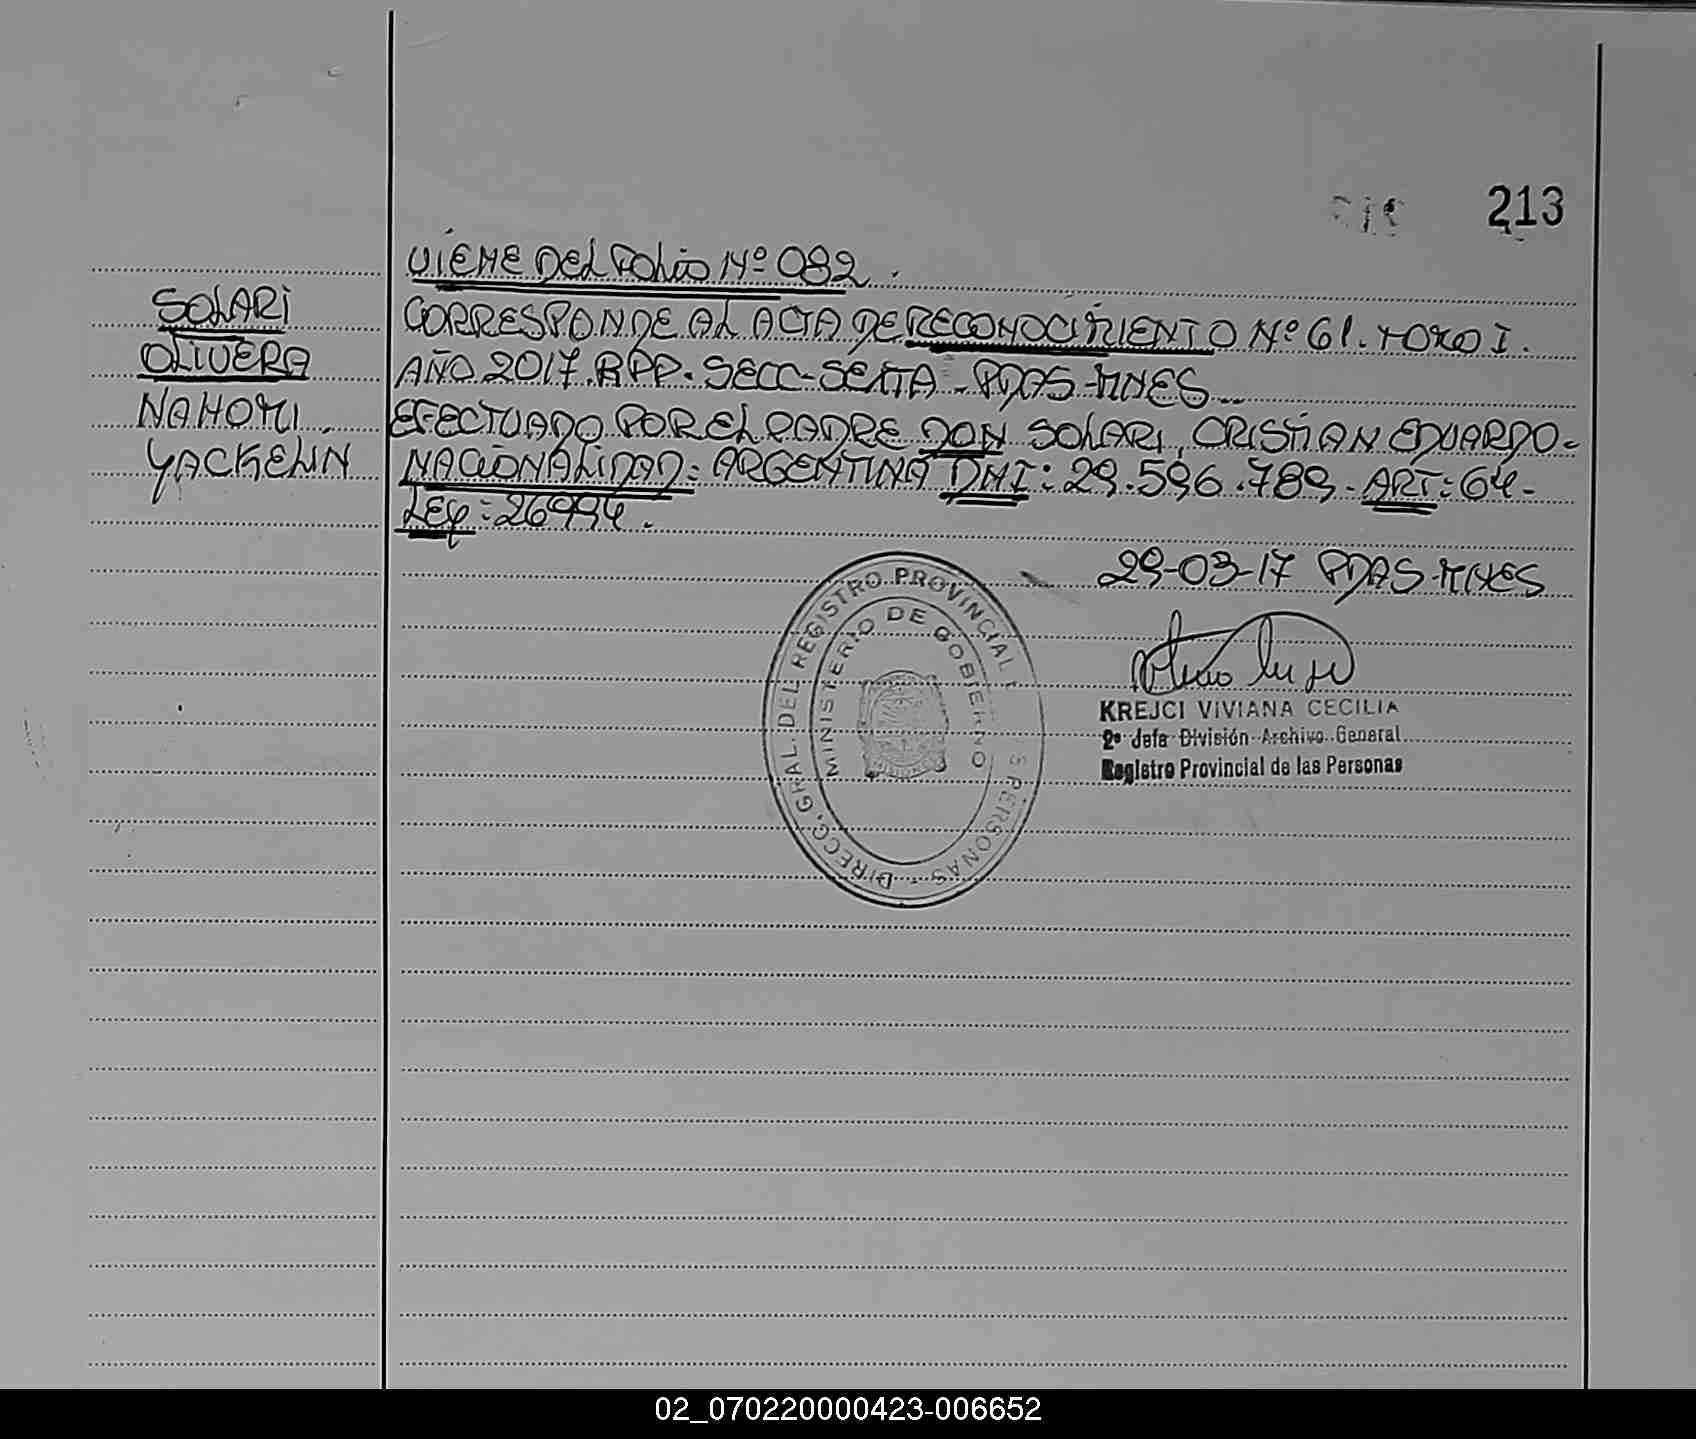 213
VIENE DEL FOLIO Nº 082.
SOLARI
OLIVERA
NAHOMI
YACKELIN
CORRESPONDE AL ACTA DE RECONOCIMIENTO Nº 61. TOMO I.
AÑO 2017. RPP. SECC-SEXTA - PDAS-MNES
EFECTUADO POR EL PADRE DON SOLARI, CRISTIAN EDUARDO-
NACIONALIDAD: ARGENTINA DNI: 29.596.789. ART: 64-
LEY: 26994.
29-03-17 PDAS-MNES
DIRECC. GRAL. DEL REGISTRO PROVINCIAL PERSONAS
MINISTERIO DE GOBIERNO
KREJCI VIVIANA CECILIA
2º Jefa División Archivo General
Registro Provincial de las Personas
02_070220000423-006652